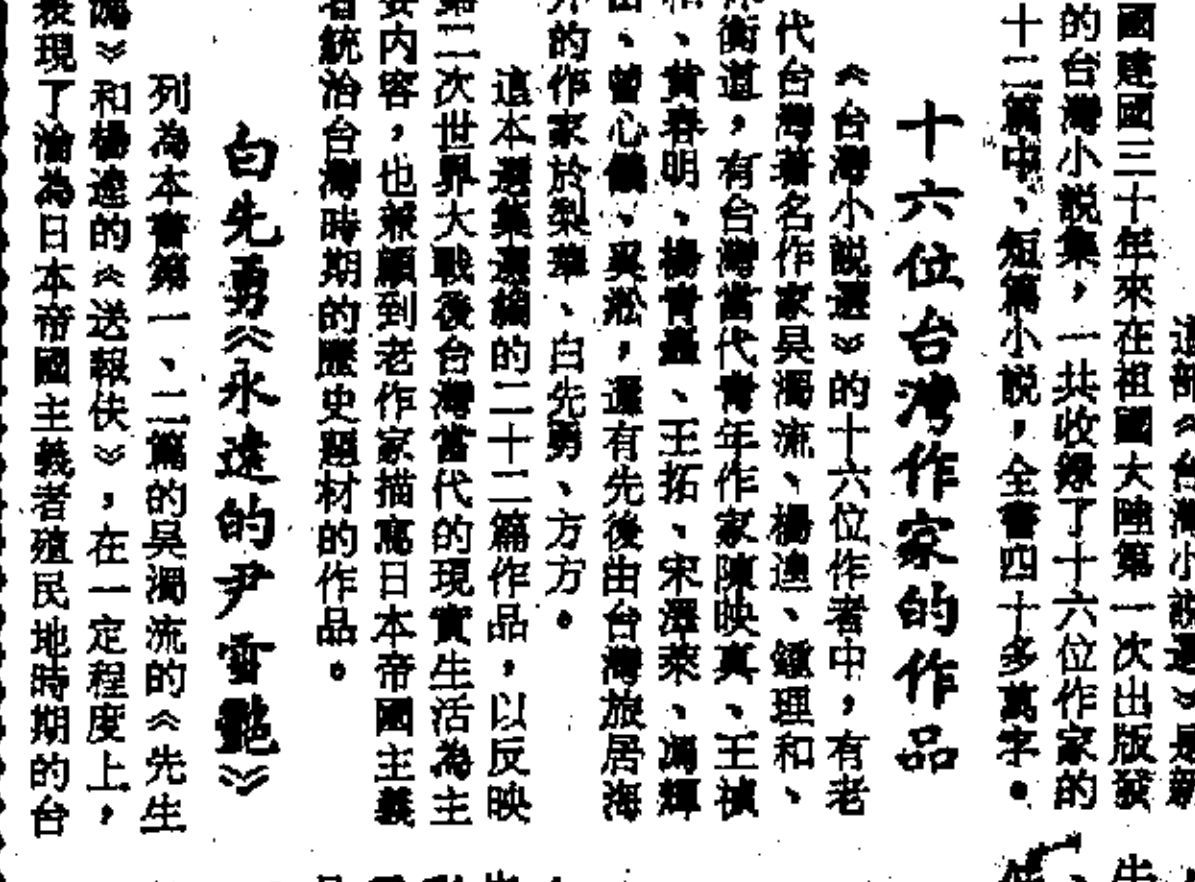 這部《台灣小說選》是新
國建國三十年來在祖國大陸第一次出版發
的台灣小說集，一共收錄了十六位作家的
十二篇中、短篇小說，全書四十多萬字。
十六位台灣作家的作品
《台灣小說選》的十六位作者中，有老
代台灣著名作家吳濁流、楊逵、鍾理和、
衡道，有台灣當代青年作家陳映真、王禎
和、黃春明、楊青矗、王拓、宋澤萊、馮輝
、曾心儀、吳淞，還有先後由台灣旅居海
外的作家於梨華、白先勇、方方。
這本選集選編的二十二篇作品，以反映
第二次世界大戰後台灣當代的現實生活為主
要內容，也兼顧到老作家描寫日本帝國主義
者統治台灣時期的歷史題材的作品。
白先勇《永遠的尹雪艷》
列為本書第一、二篇的吳濁流的《先生
媽》和楊逵的《送報伕》，在一定程度上，
表現了淪為日本帝國主義者殖民地時期的台